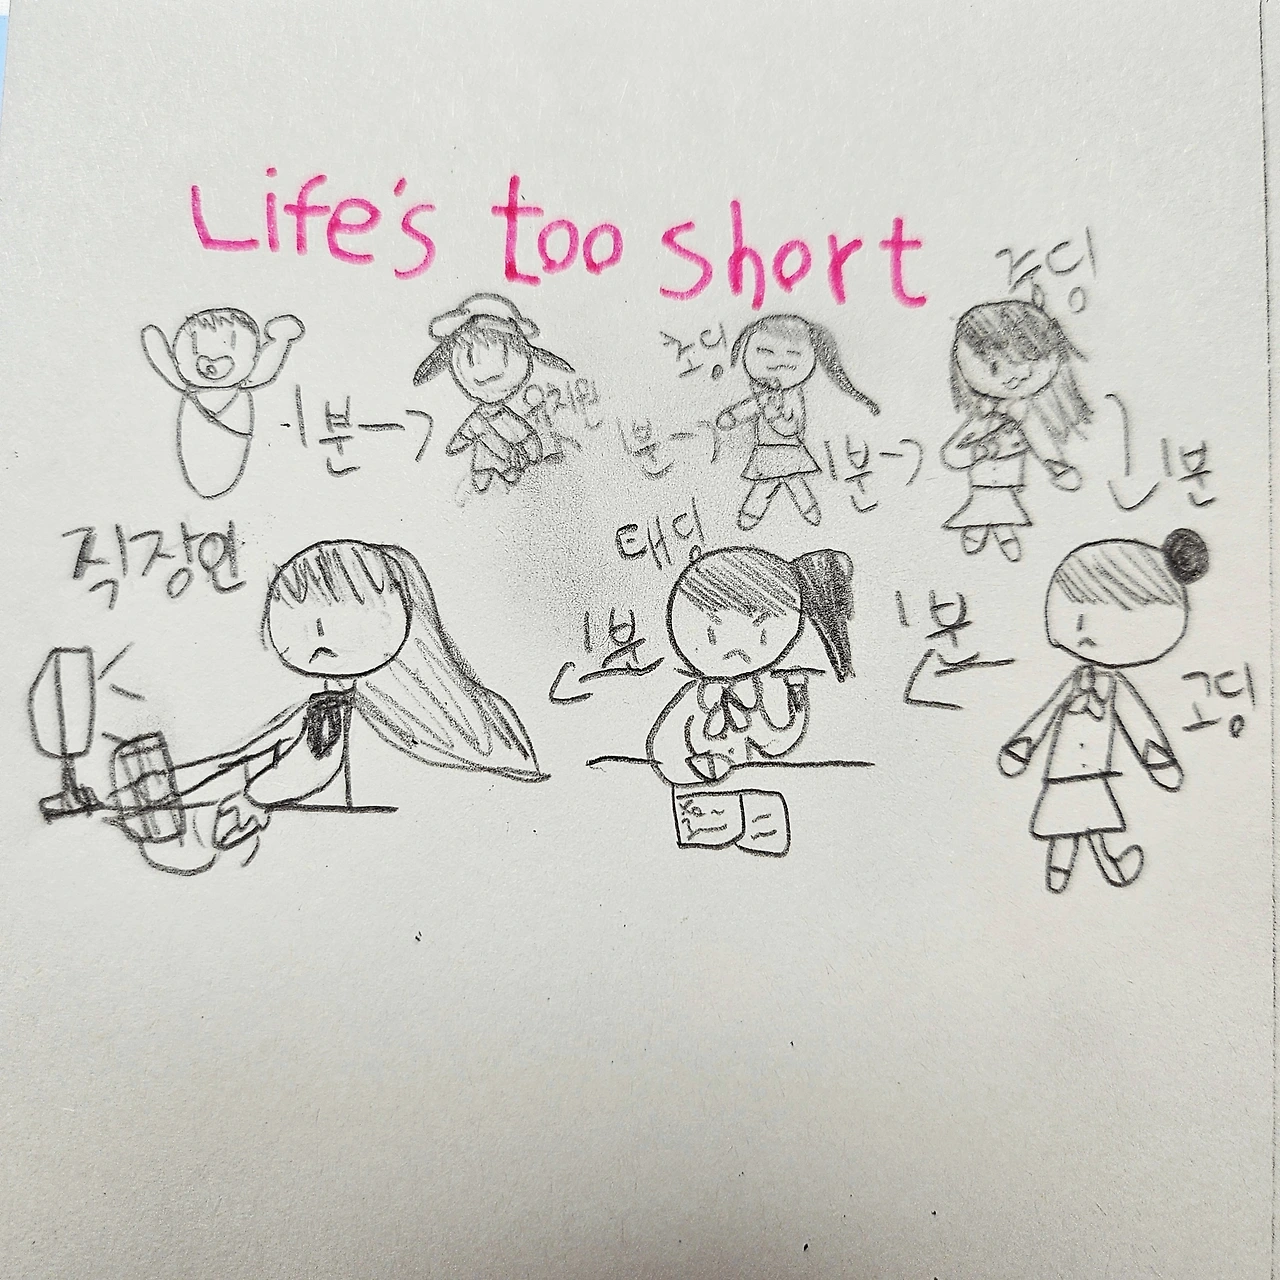 Life's too short
1분
유치원
1분
초딩
1분
중딩
1분
고딩
1분
대딩
1분
직장인